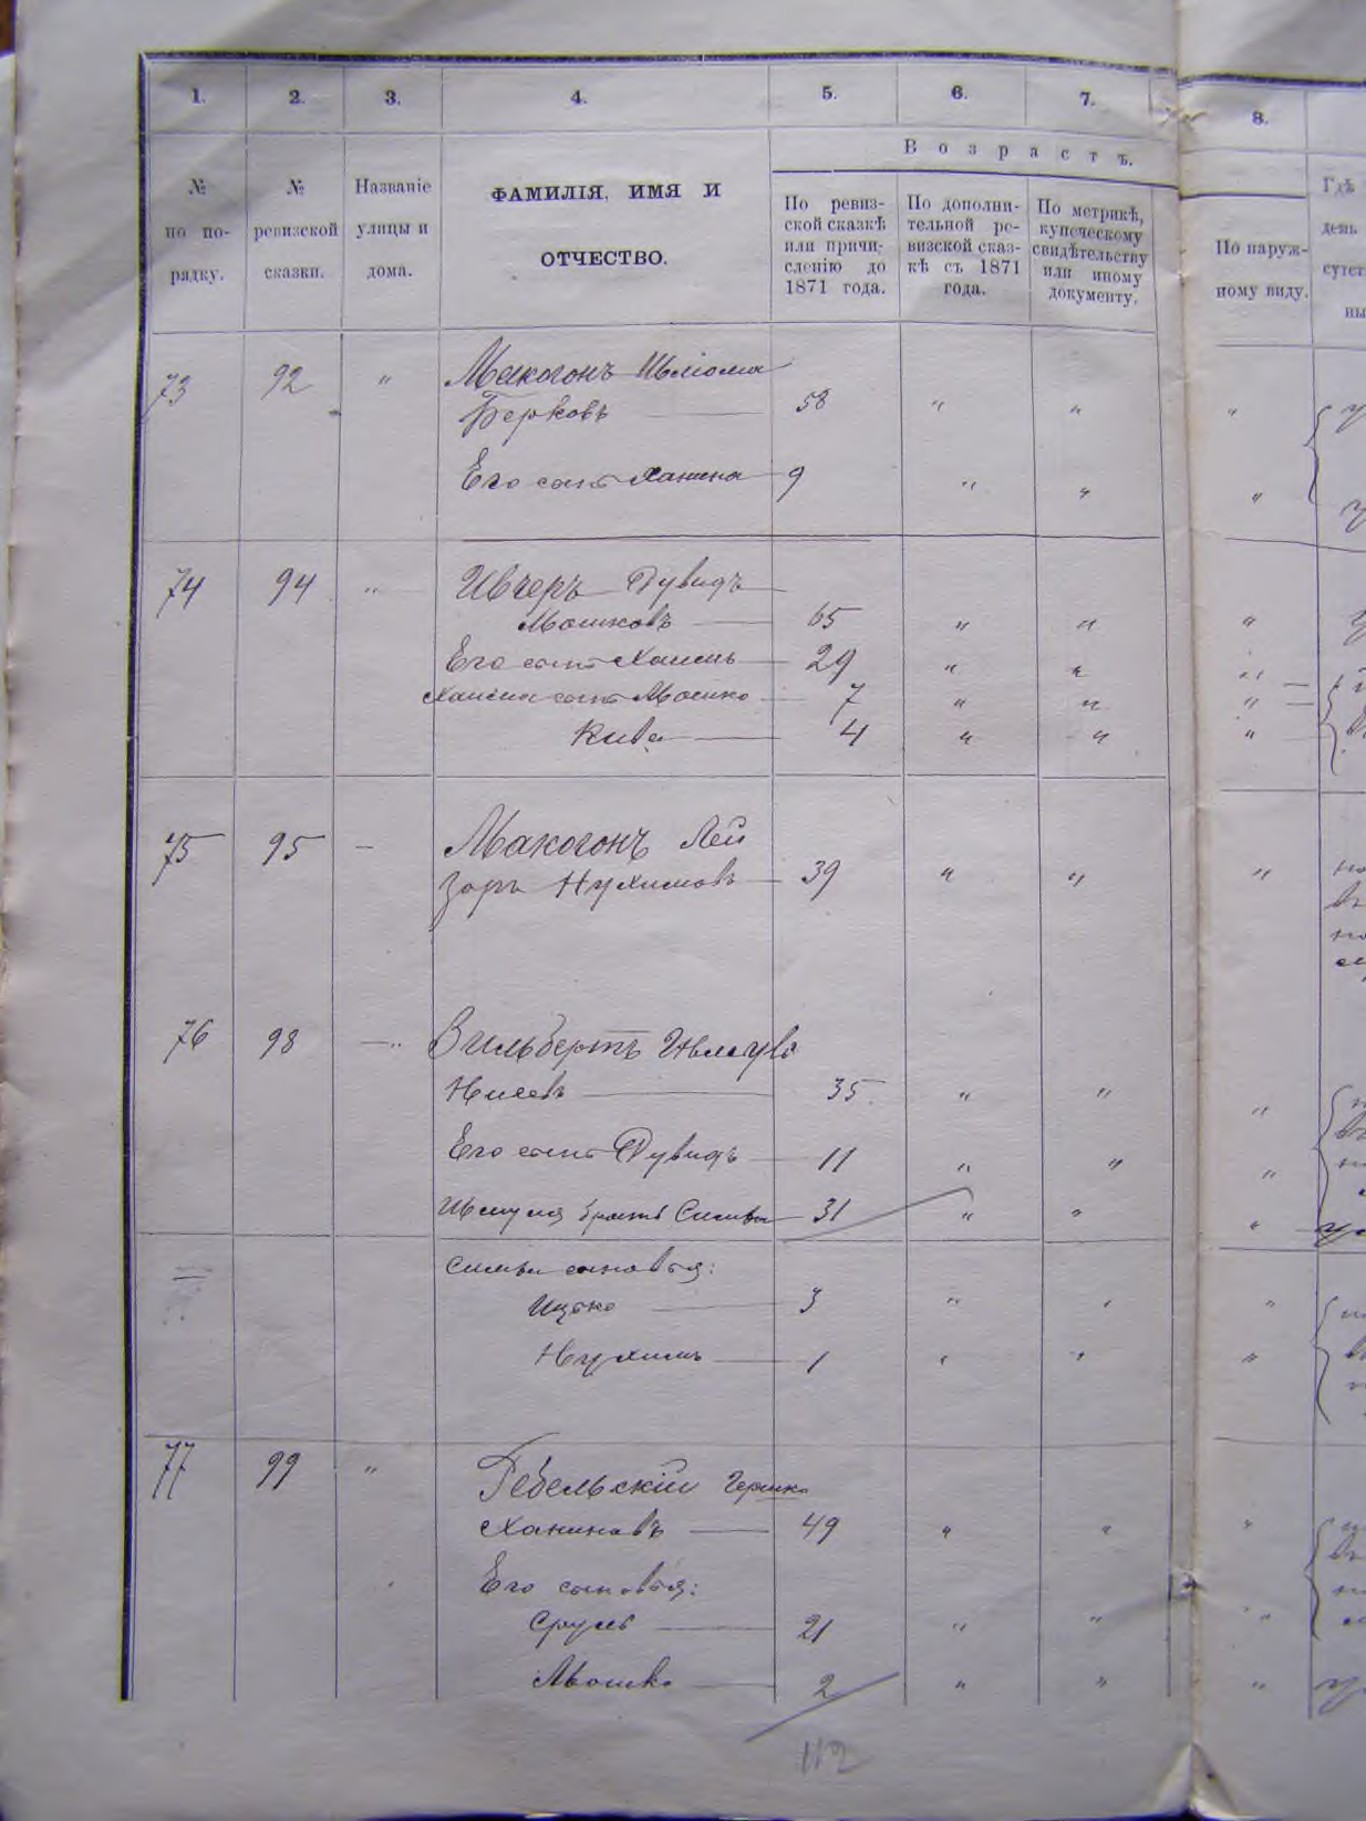 1. 2. 3. 4. 5. 6. 7. 8.
Возрастъ.
№ по по-рядку.
№ ревизской сказки.
Названіе улицы и дома.
ФАМИЛІЯ, ИМЯ И
ОТЧЕСТВО.
По ревиз-
ской сказкѣ
или причи-
сленію до
1871 года.
По дополни-
тельной ре-
визской сказ-
кѣ съ 1871
года.
По метрикѣ,
купеческому
свидѣтельству
или иному
документу.
По наруж-
ному виду.
Гдѣ
день
73 92 " Макогонъ Шліома
Берковъ 58 " " "
Его сынъ Ханина 9 " " "
74 94 " Ивчеръ Дувидъ
Мошковъ 65 " " "
Его сынъ Хаимъ 29 " " "
Хаима сынъ Мошко 7 " " "
Кива 4 " " "
75 95 — Макогонъ Лей
зоръ Нухимовъ 39 " " "
76 98 —" Вильбертъ
35 " " "
Его сынъ Дувидъ 11 " " "
братъ 31 " " "
сыновья:
Ицко 3 " " "
Нухимъ 1 " " "
77 99 " Гебельскій Гершко
Ханиновъ 49 " " "
Его сыновья:
Сруль 21 " " "
Мошко 2 " " "
112